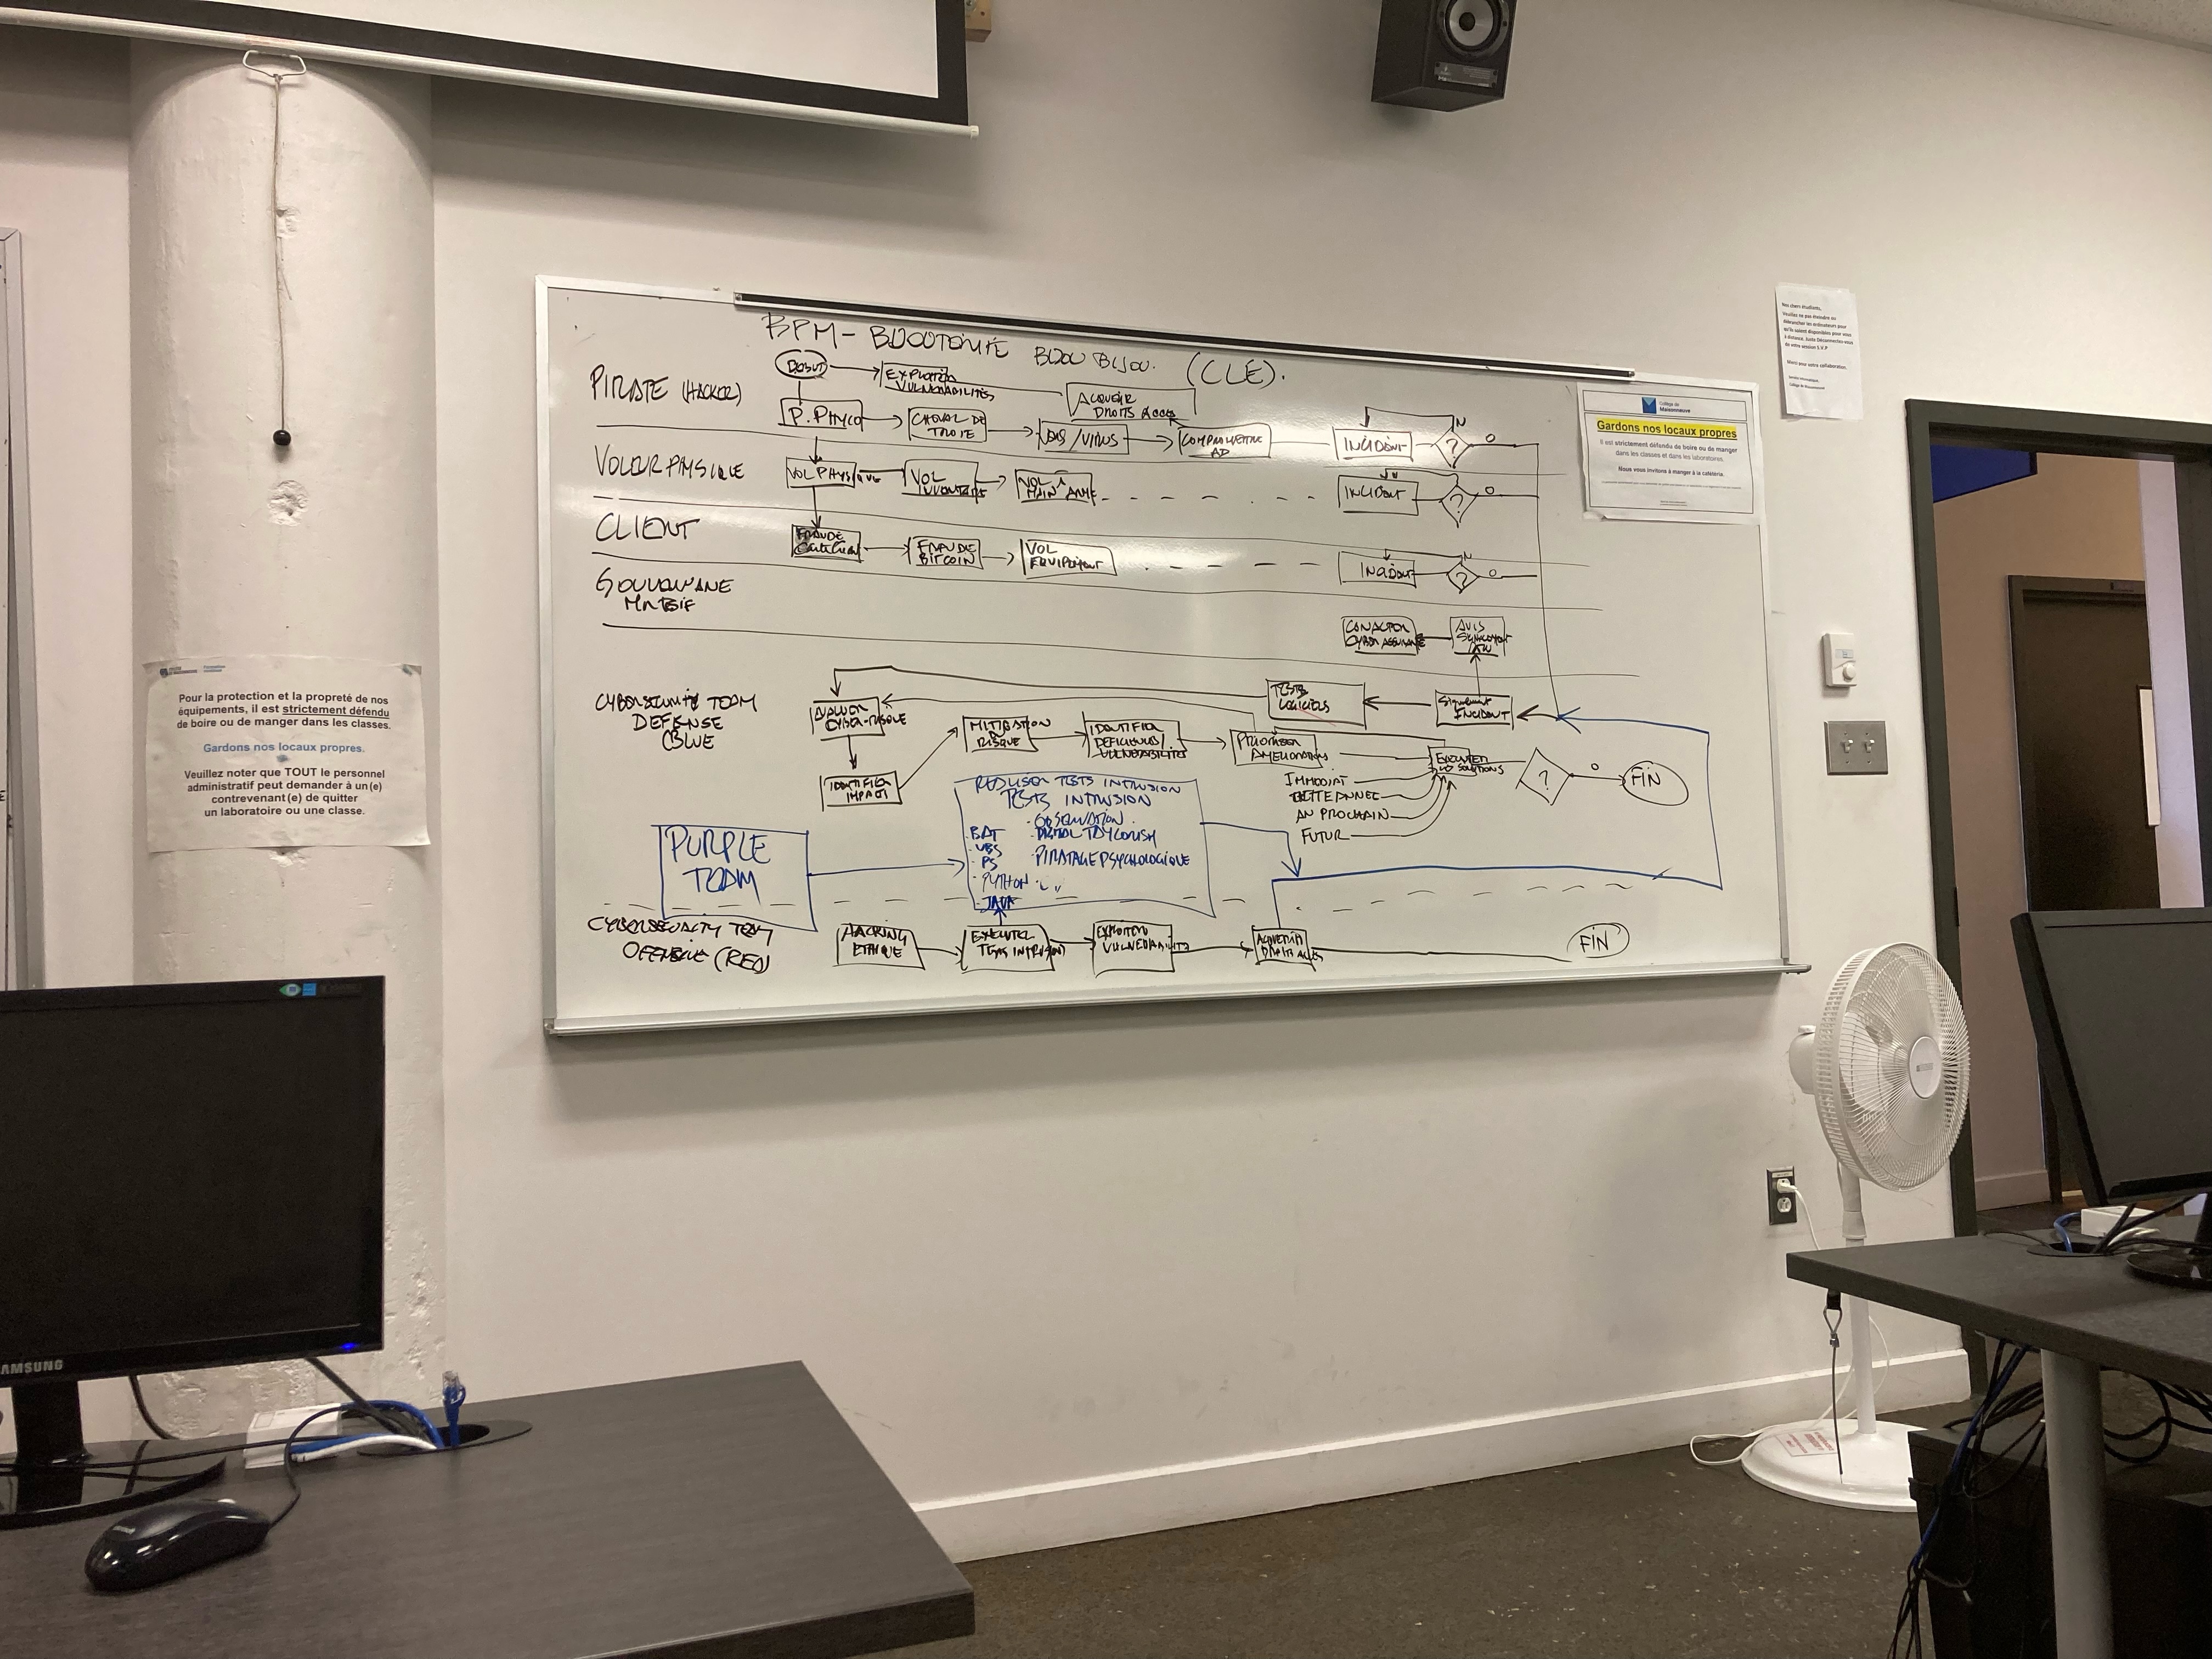 BPM - BIJOUTERIE BIJOU BIJOU. (CLE).
PIRATE (HACKER)
DEBUT
EXPLOITER
VULNERABILITÉS
ACQUERIR
DROITS ACCES
P. PHYCO
CHEVAL DE
TROIE
/VIRUS
COMPROMETTRE
AD
INCIDENT
?
N
O
VOLEUR PHYSIQUE
VOL PHYSIQUE
VOL
INVENTAIRE
VOL
MAIN ARMÉ
INCIDENT
N
?
O
CLIENT
FRAUDE
FRAUDE
BITCOIN
VOL
EQUIPEMENT
INCIDENT
N
?
O
CONTACTER
CYBER ASSURANCE
AVIS
CYBERSECURITY TEAM
DEFENSE
(BLUE
EVALUER
CYBER-RISQUE
TESTS
LOGICIELS
INCIDENT
IDENTIFIER
IMPACT
MITIGATION
RISQUE
IDENTIFIER
DEFICIENCES/
VULNERABILITÉS
PRIORISER
AMELIORATIONS
EXECUTER
SOLUTIONS
?
O
FIN
IMMEDIAT
CETTE ANNEE
AN PROCHAIN
FUTUR
PURPLE
TEAM
REALISER TESTS INTRUSION
TESTS INTRUSION
- OBSERVATION
BAT
- VBS
- PS
- PIRATAGE PSYCHOLOGIQUE
- PYTHON
- JAVA
CYBERSECURITY TEAM
OFFENSIVE (RED)
HACKING
ETHIQUE
EXECUTER
TESTS INTRUSION
EXPLOITER
VULNERABILITÉ
ACQUERIR
DROITS ACCES
FIN
Collège de
Maisonneuve
Gardons nos locaux propres
Il est strictement défendu de boire ou de manger
dans les classes et dans les laboratoires.
Nous vous invitons à manger à la cafétéria.
Nos chers étudiants,
Veuillez ne pas éteindre ou
débrancher les ordinateurs pour
qu'ils soient disponibles pour vous
à distance. Juste Déconnectez-vous
de votre session S.V.P
Merci pour votre collaboration.
Pour la protection et la propreté de nos
équipements, il est strictement défendu
de boire ou de manger dans les classes.
Gardons nos locaux propres.
Veuillez noter que TOUT le personnel
administratif peut demander à un(e)
contrevenant(e) de quitter
un laboratoire ou une classe.
AMSUNG